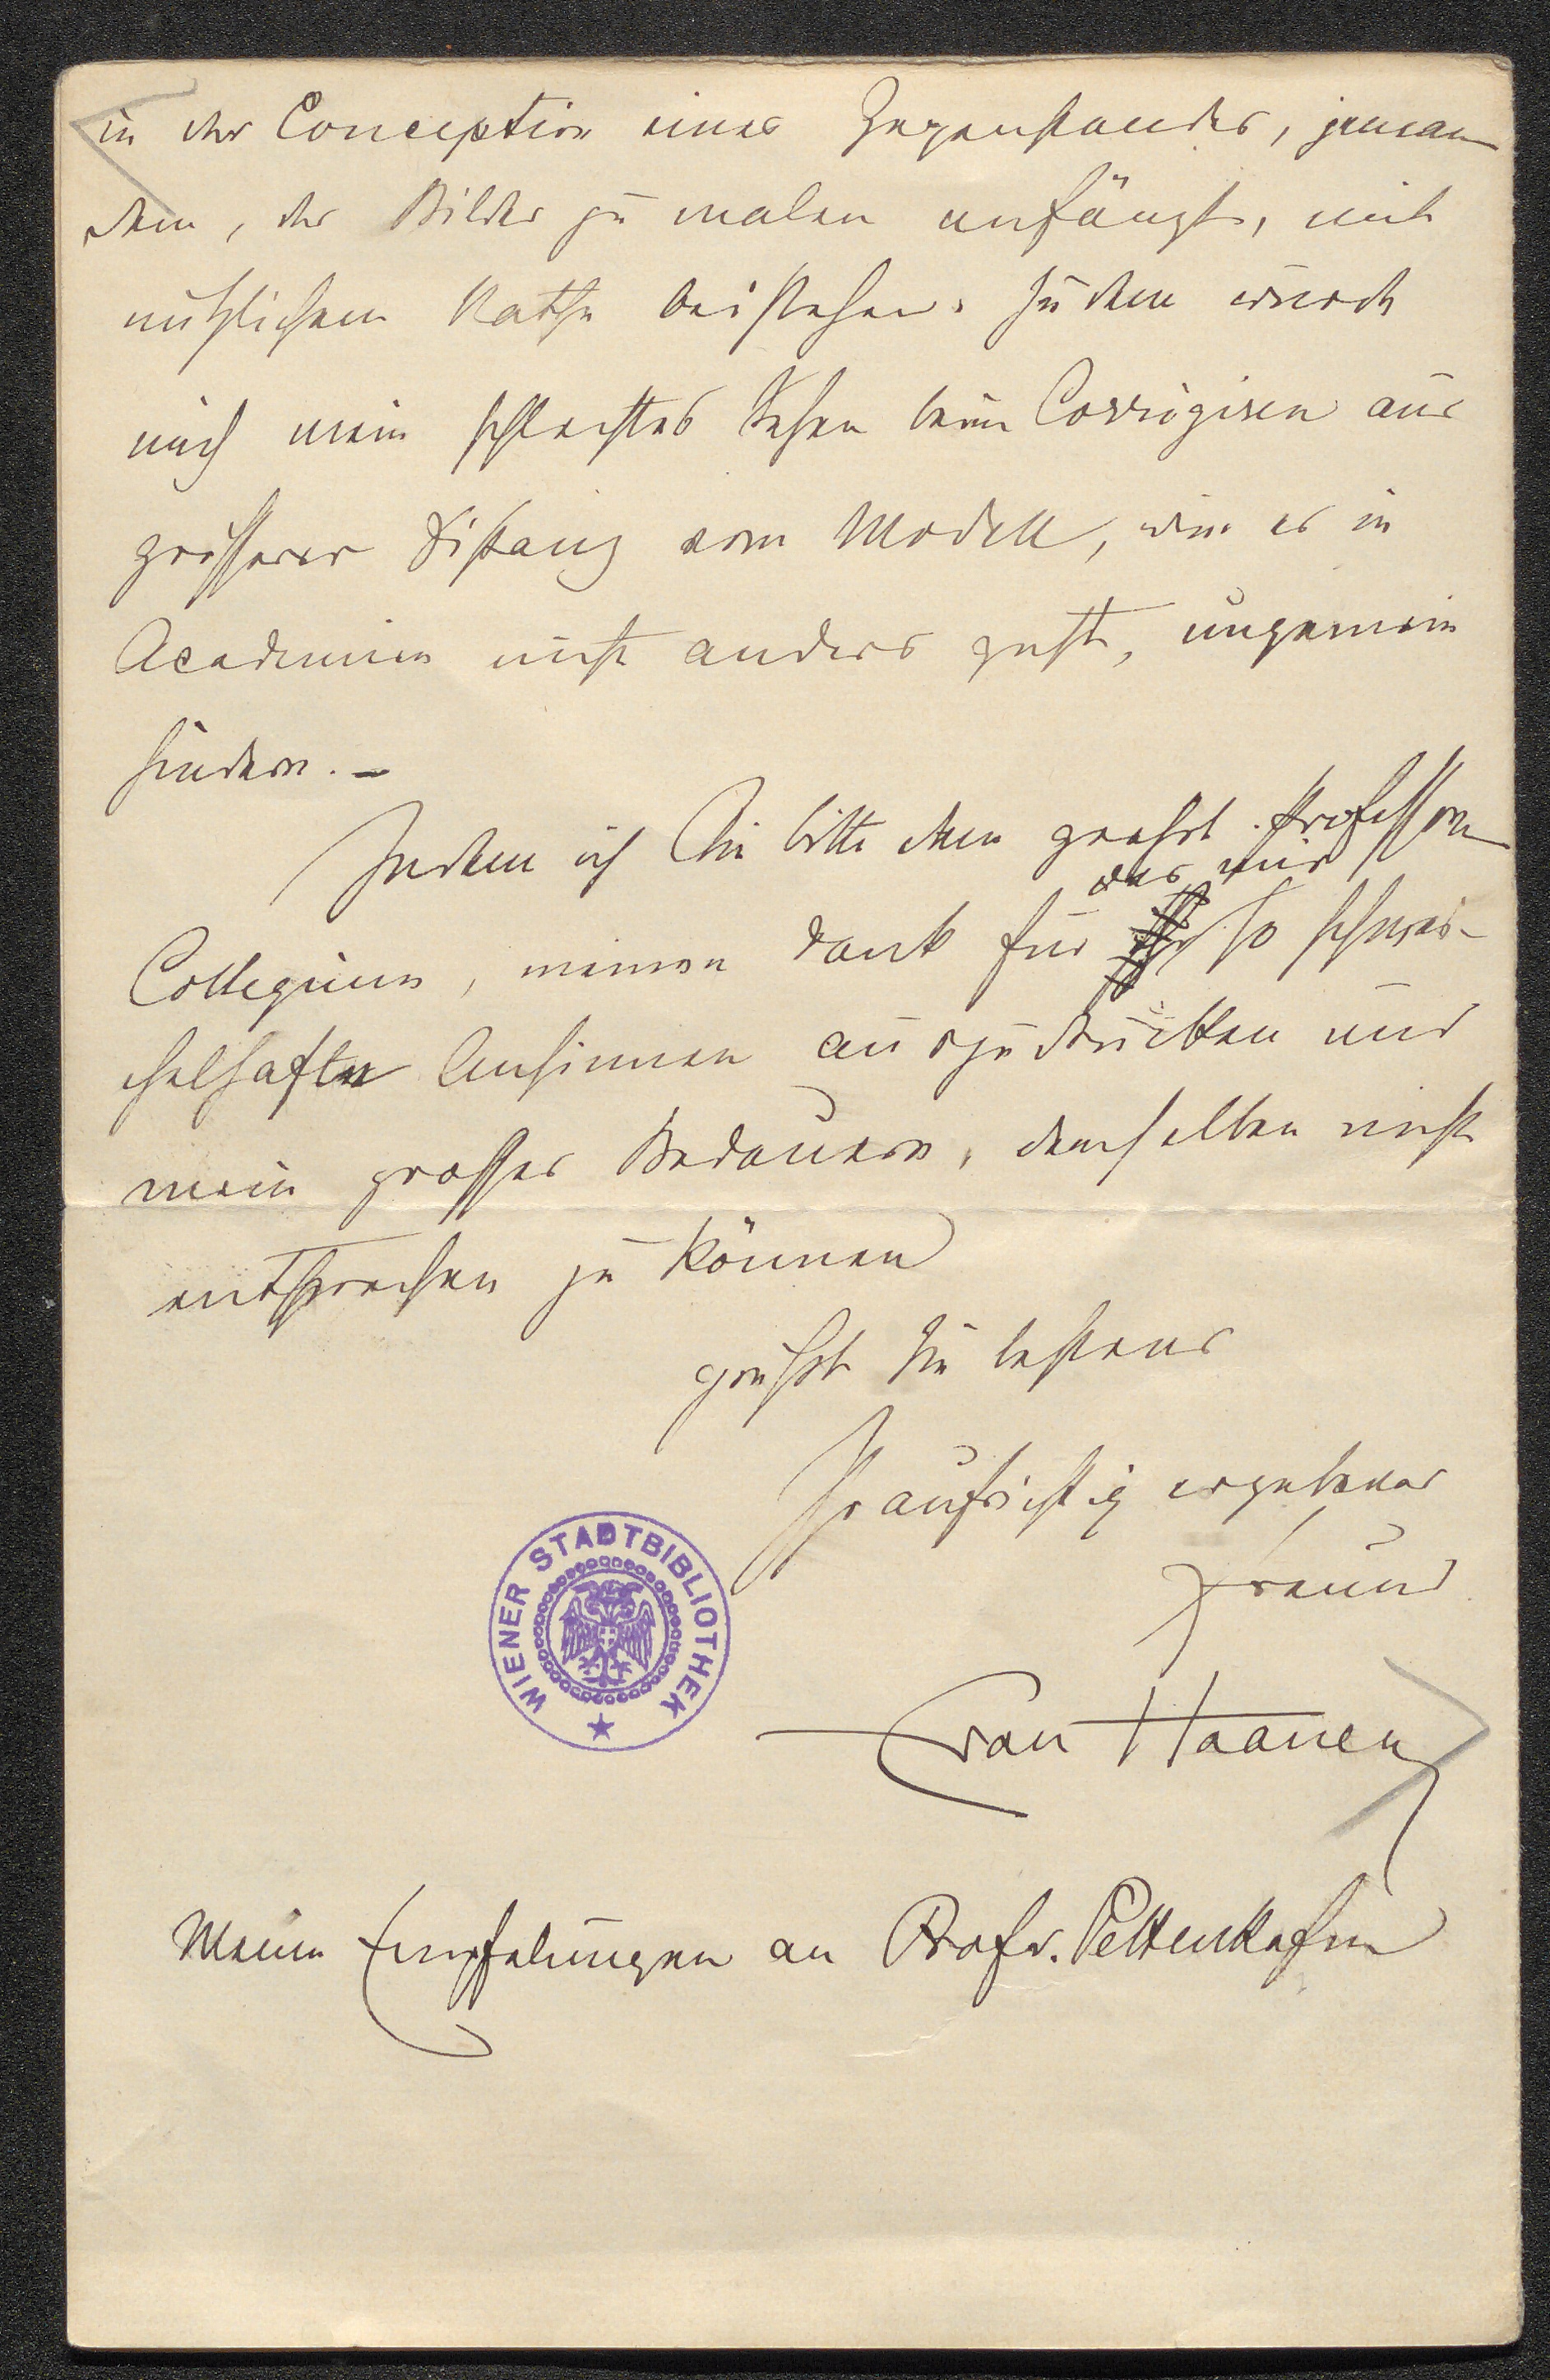 in der Conception eines Gegenstandes, jeman
dem, der Bilder zu malen anfängt, mit
nützlichem Rathe beistehen. Zudem würde
mich mein schlechtes Sehen beim Corrigiren aus
grösserer Distanz vom Modell, wie es in
Academien nicht anders geht, ungemein
hindern. –
Indem ich Sie bitte dem geehrt. Professoren
Collegium, meinen Dank für das mir so schmei-
chelhafte Ansinnen auszudrücken und
mein grosses Bedauern, demselben nicht
entsprechen zu können
grüsst Sie bestens
Ihr aufrichtig ergebener
Freund
van Haanen
Meine Empfelungen an Profs. Pettenkofen
WIENER STADTBIBLIOTHEK